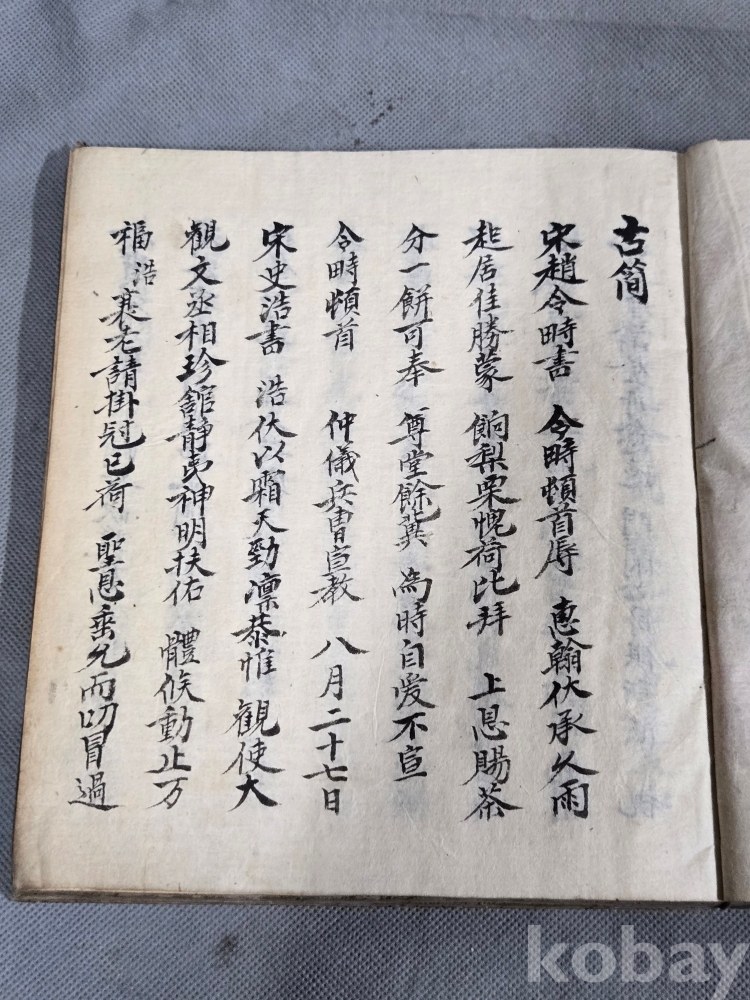 古簡
宋趙令畤書 令畤頓首辱 惠翰伏承久雨
起居佳勝蒙 餉梨栗愧荷比拜 上恩賜茶
分一餠可奉 尊堂餘冀 為時自愛不宣
令畤頓首 仲儀兵曹宣教 八月二十七日
宋史浩書 浩伏以霜天勁凛恭惟 觀使大
觀文丞相珍舘靜 神明扶佑 體候動止万
福 浩衰老請掛冠已荷 聖恩垂允而叨冒過
kobay